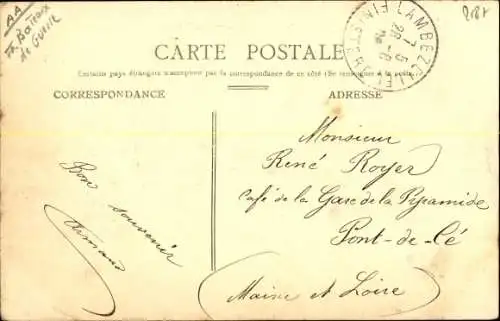 AA
Th. Bateaux
de Guerre
CARTE POSTALE
Certains pays étrangers n'acceptent pas la correspondance de ce côté (Se renseigner à la poste).
CORRESPONDANCE
ADRESSE
LAMBEZELLEC FINISTERE
7-5
Bon souvenir
Armand
Monsieur
René Royer
Café de la Gare de la Pyramide
Pont-de-Cé
(Maine et Loire)